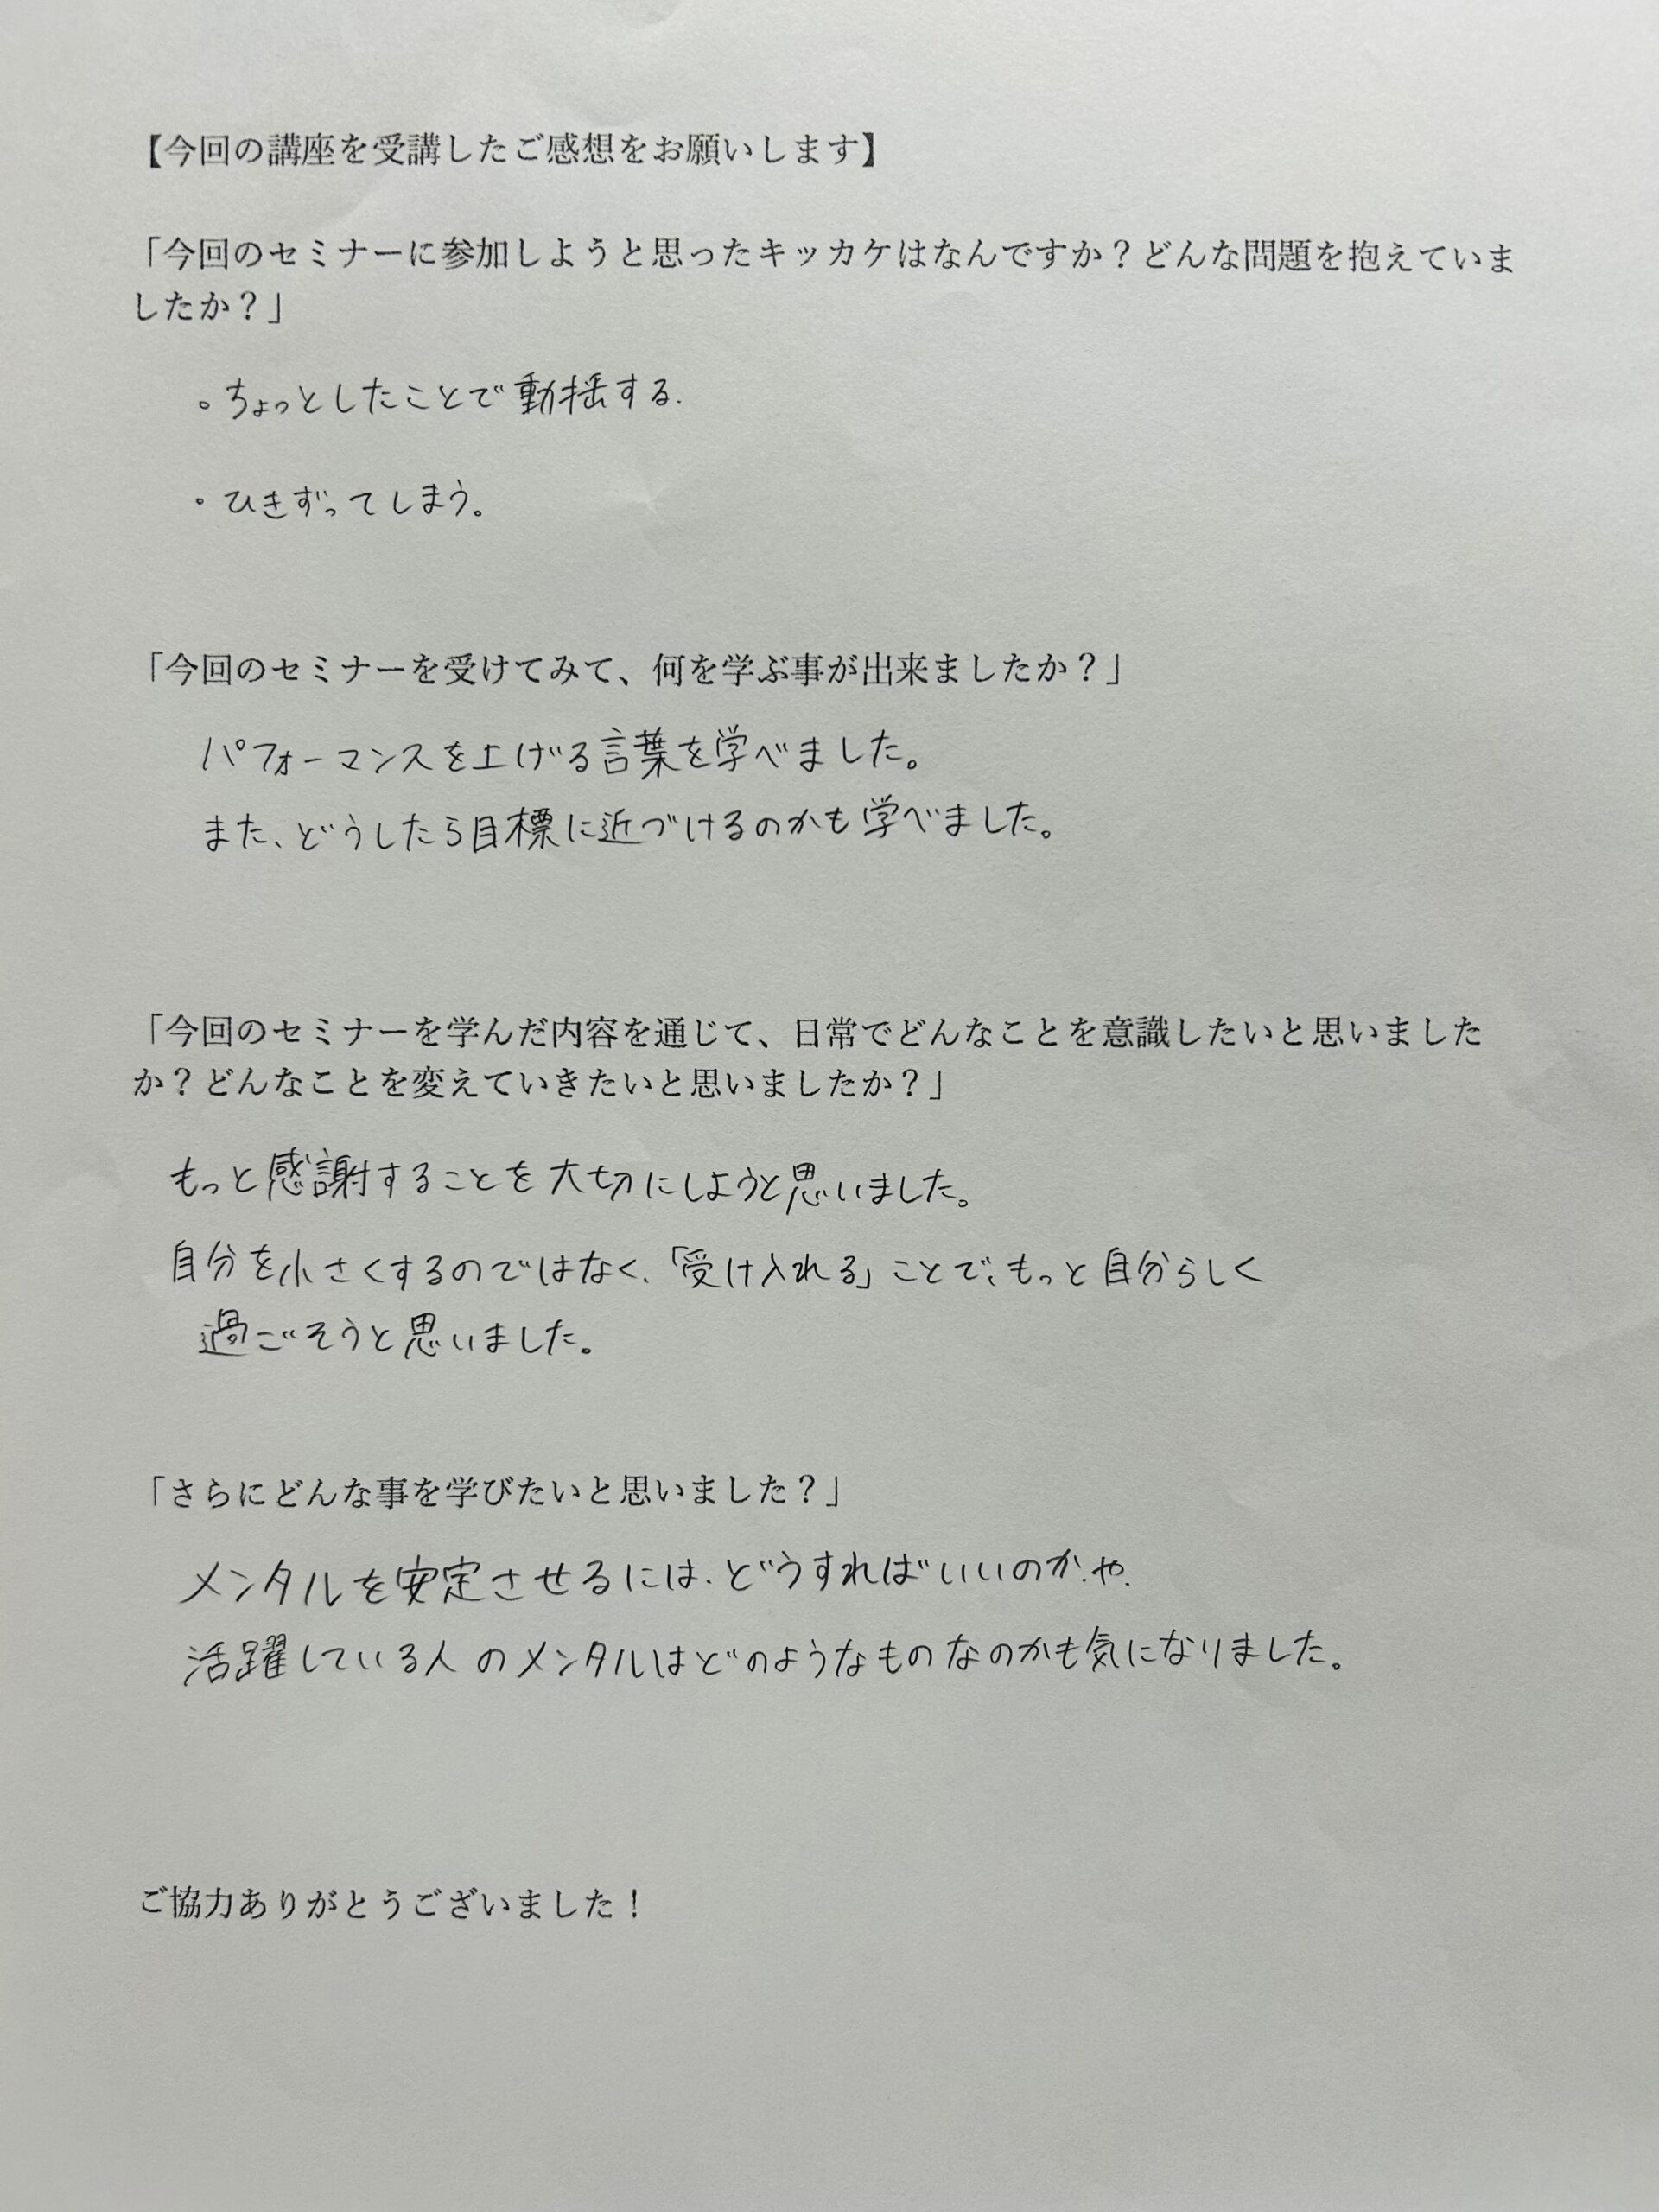 【今回の講座を受講したご感想をお願いします】
「今回のセミナーに参加しようと思ったキッカケはなんですか？どんな問題を抱えていま
したか？」
。ちょっとしたことで動揺する.
・ひきずってしまう。
「今回のセミナーを受けてみて、何を学ぶ事が出来ましたか？」
パフォーマンスを上げる言葉を学べました。
また、どうしたら目標に近づけるのかも学べました。
「今回のセミナーを学んだ内容を通じて、日常でどんなことを意識したいと思いました
か？どんなことを変えていきたいと思いましたか？」
もっと感謝することを大切にしようと思いました。
自分を小さくするのではなく、「受け入れる」ことで、もっと自分らしく
過ごそうと思いました。
「さらにどんな事を学びたいと思いました？」
メンタルを安定させるには、どうすればいいのか、や、
活躍している人のメンタルはどのようなものなのかも気になりました。
ご協力ありがとうございました！